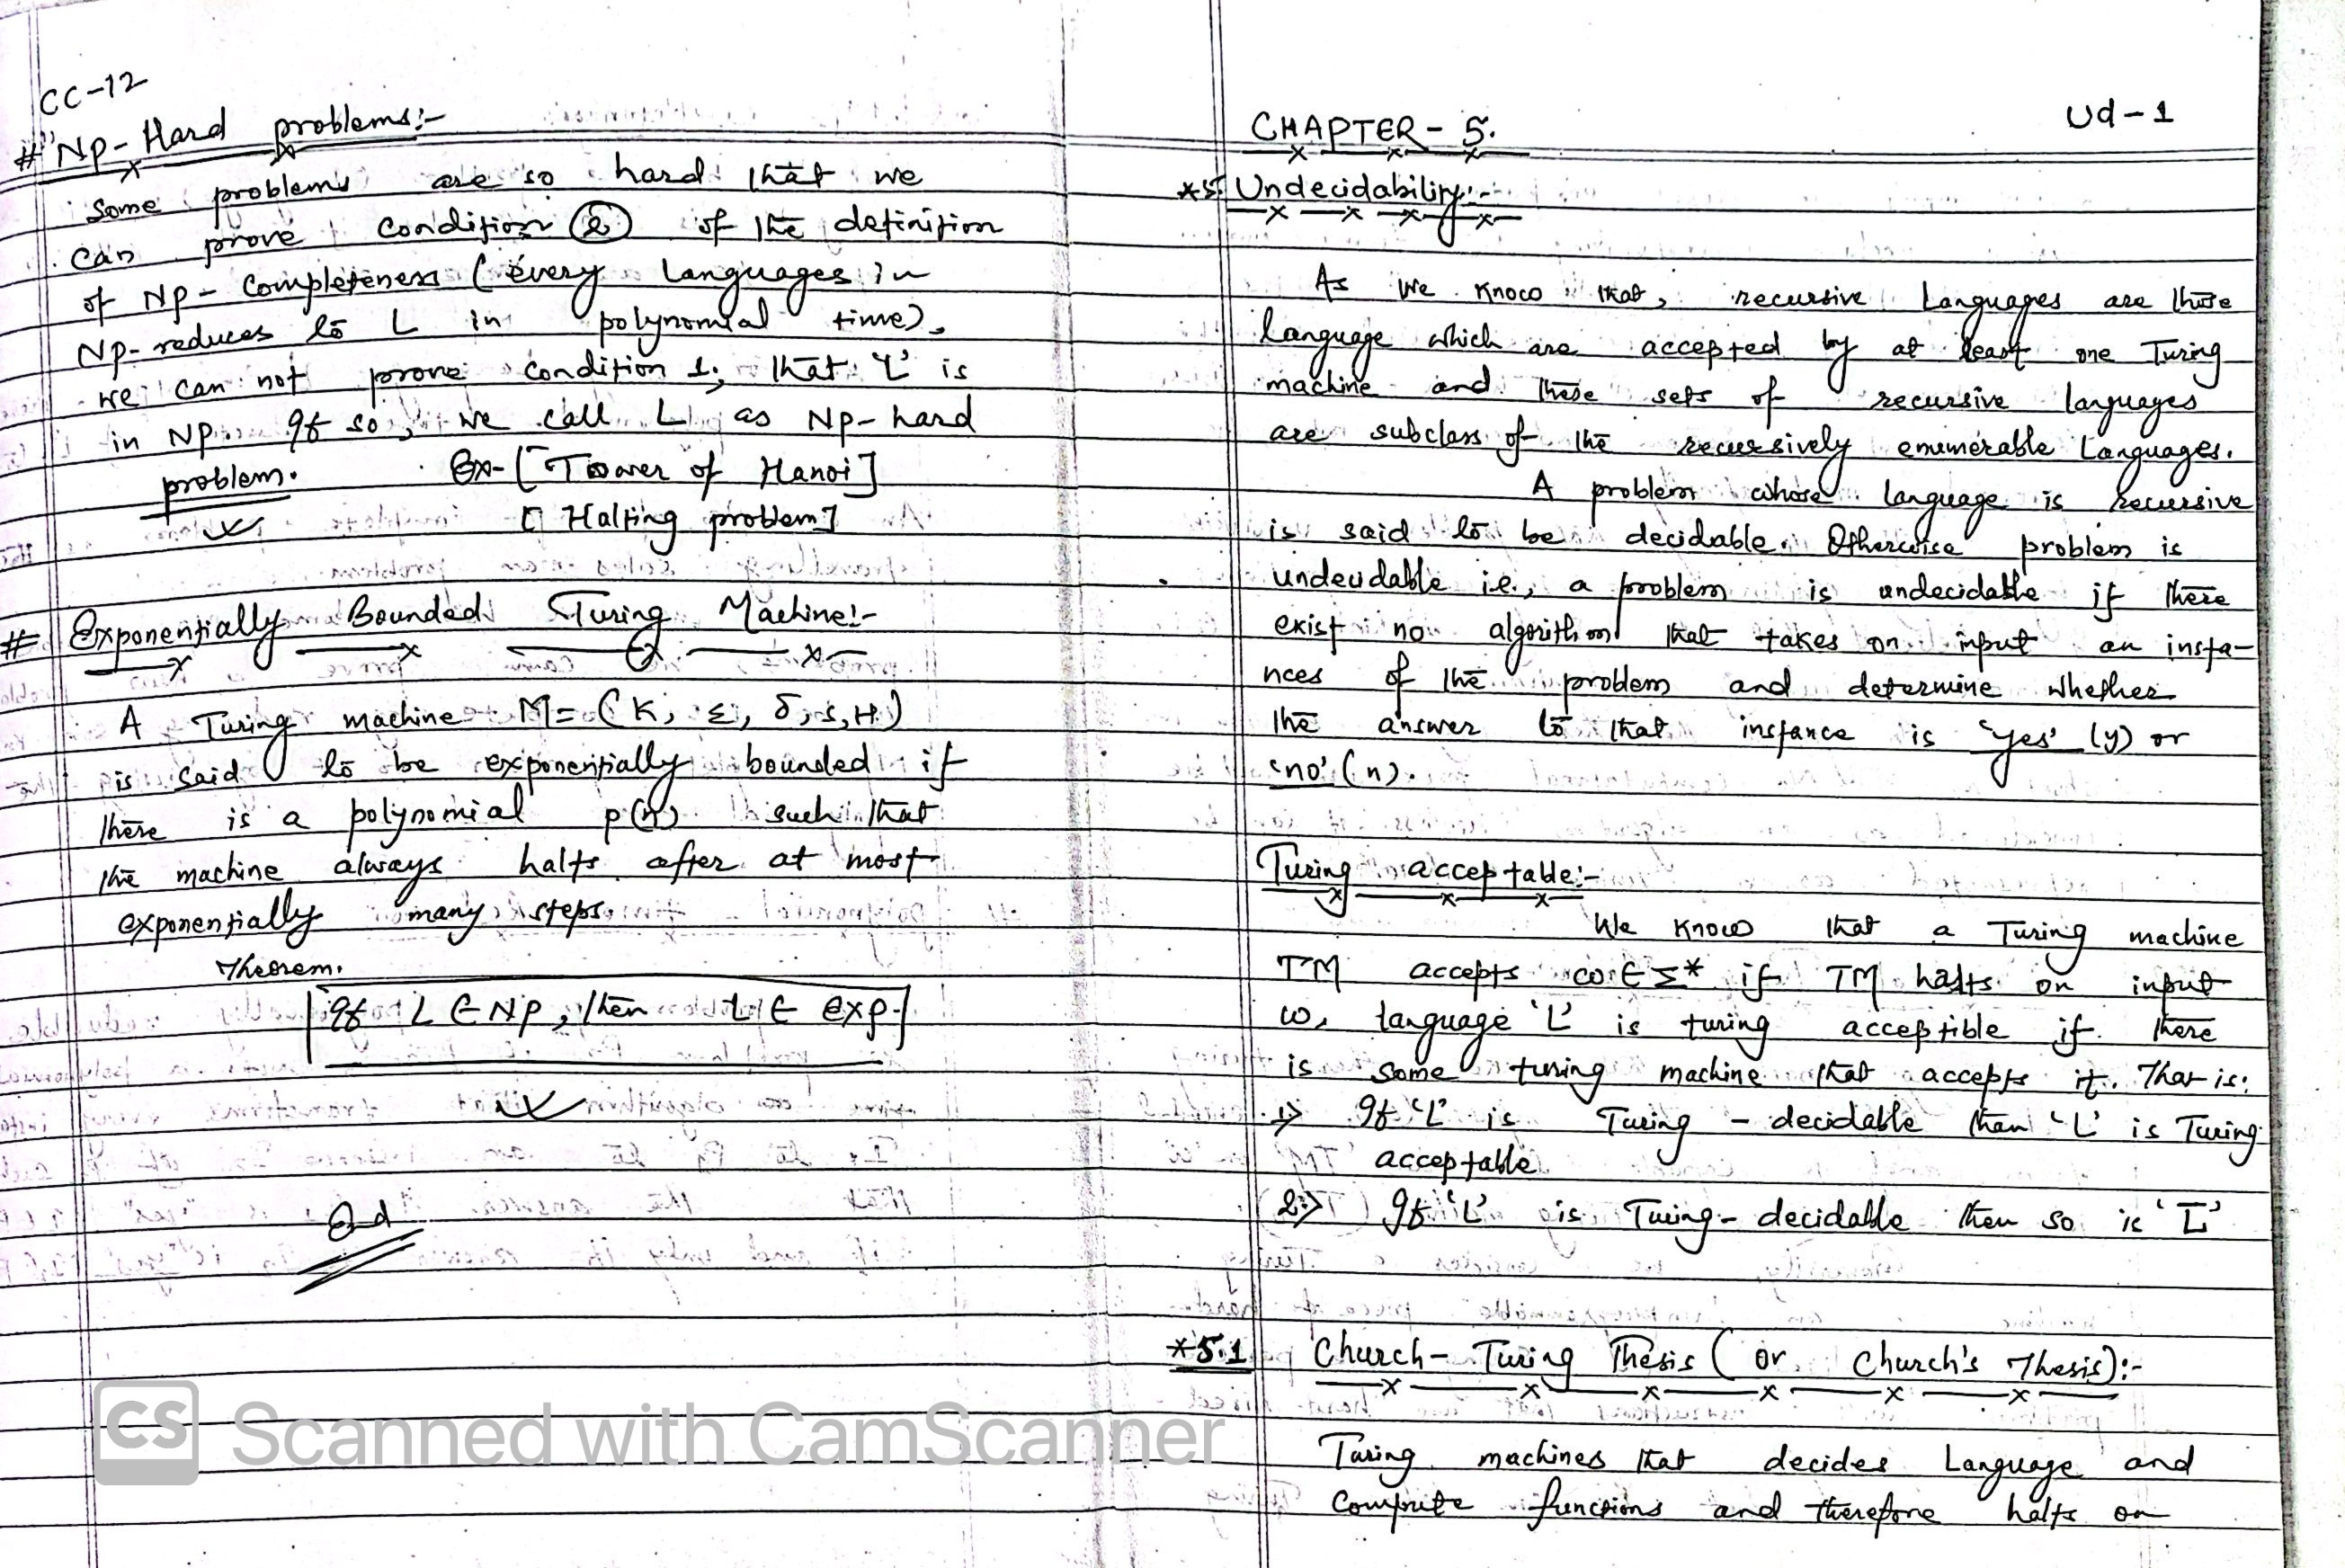 CC-12
# "Np-Hard problems:-
Some problems are so hard that we
can prove condition ② of the definition
of Np-Completeness (every languages in
Np-reduces to L in polynomial time),
we can not prove condition 1; that 'L' is
in NP. If so, we call L as Np-hard
problem. Ex- [Tower of Hanoi]
[Halting problem]
# Exponentially Bounded Turing Machine:-
A Turing machine M = (K, Σ, δ, s, H)
is said to be exponentially bounded if
there is a polynomial p(n) such that
the machine always halts after at most
exponentially many steps.
Theorem.
If L ∈ NP, then L ∈ exp.
End
Ud-1
CHAPTER-5.
*5. Undecidability:-
As we know that, recursive Languages are those
language which are accepted by at least one Turing
machine and these sets of recursive languages
are subclass of the recursively enumerable Languages.
A problem whose language is recursive
is said to be decidable. Otherwise problem is
undecidable i.e., a problem is undecidable if there
exist no algorithm that takes on input an insta-
nces of the problem and determine whether
the answer to that instance is 'yes' (y) or
'no' (n).
Turing acceptable:-
We know that a Turing machine
TM accepts w ∈ Σ* if TM halts on input
w, language 'L' is turing acceptible if there
is some turing machine that accepts it. That is:
1> If 'L' is Turing-decidable than 'L' is Turing
acceptable
2> If 'L' is Turing-decidable then so is 'L̅'
*5.1 Church-Turing Thesis (or Church's Thesis):-
Turing machines that decides Language and
Compute functions and therefore halts on
CS Scanned with CamScanner